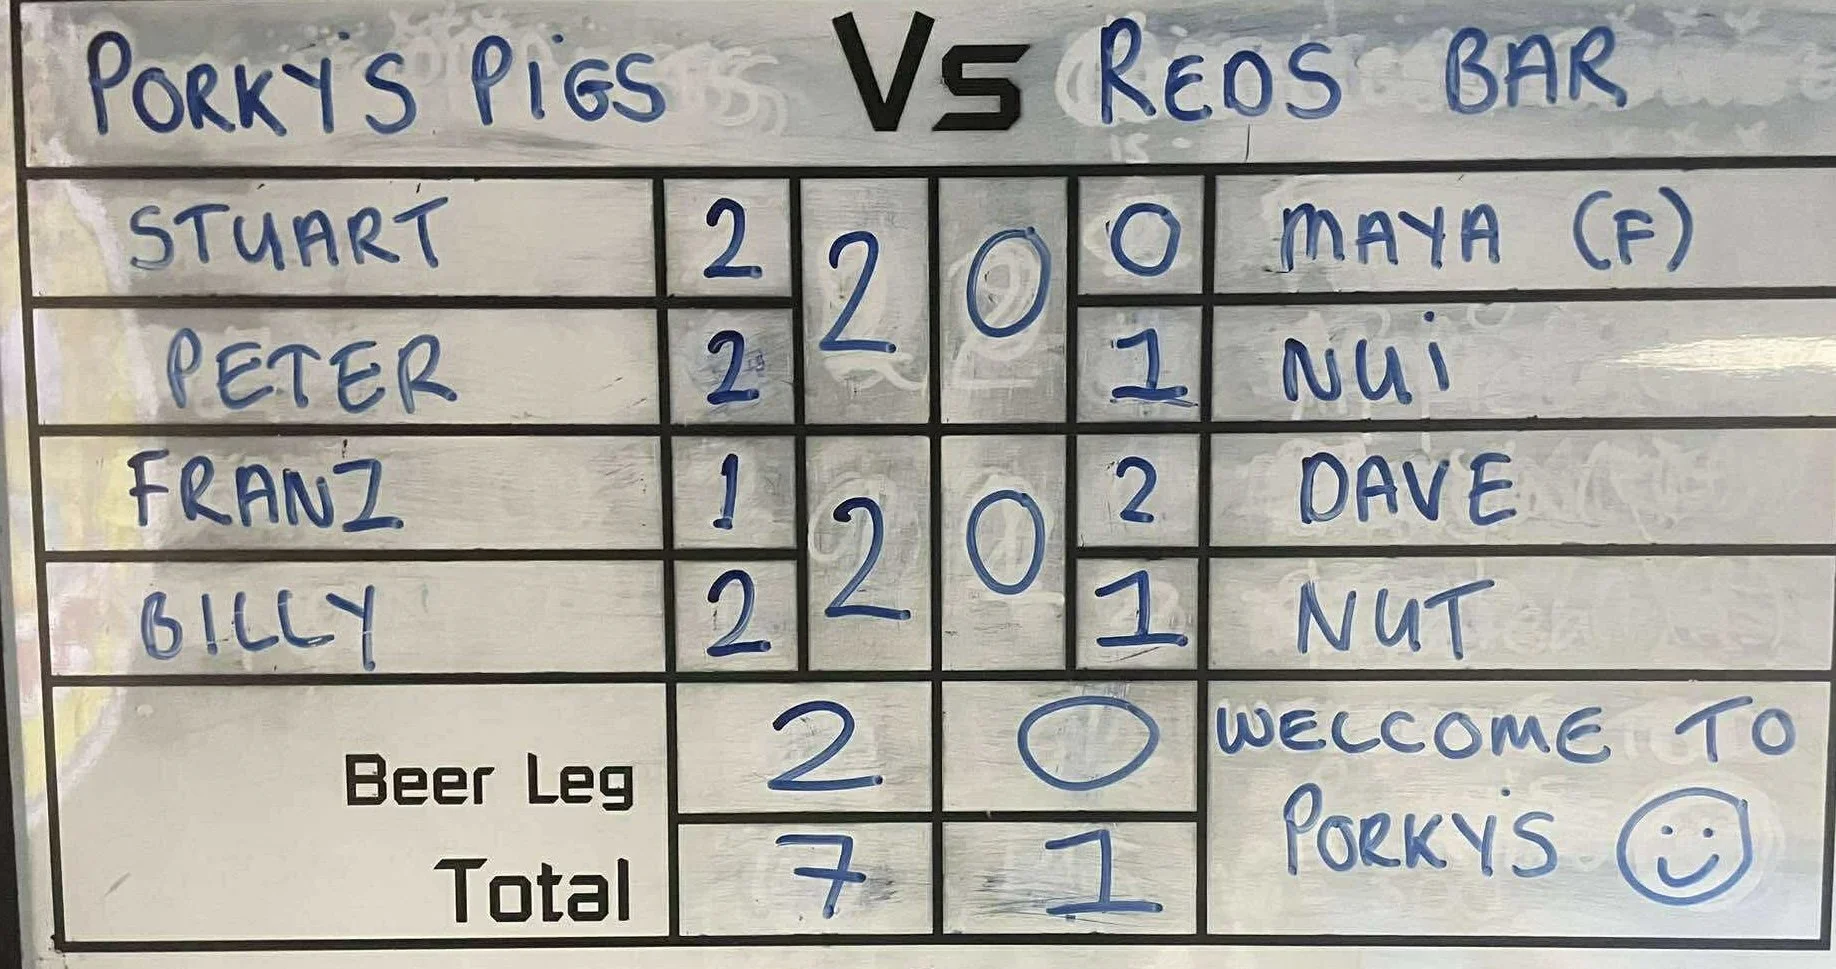 PORKY'S PIGS Vs REDS BAR
STUART 2 2 0 0 MAYA (F)
PETER 2 1 NUI
FRANZ 1 2 0 2 DAVE
BILLY 2 1 NUT
Beer Leg 2 0 WELCOME TO
Total 7 1 PORKY'S